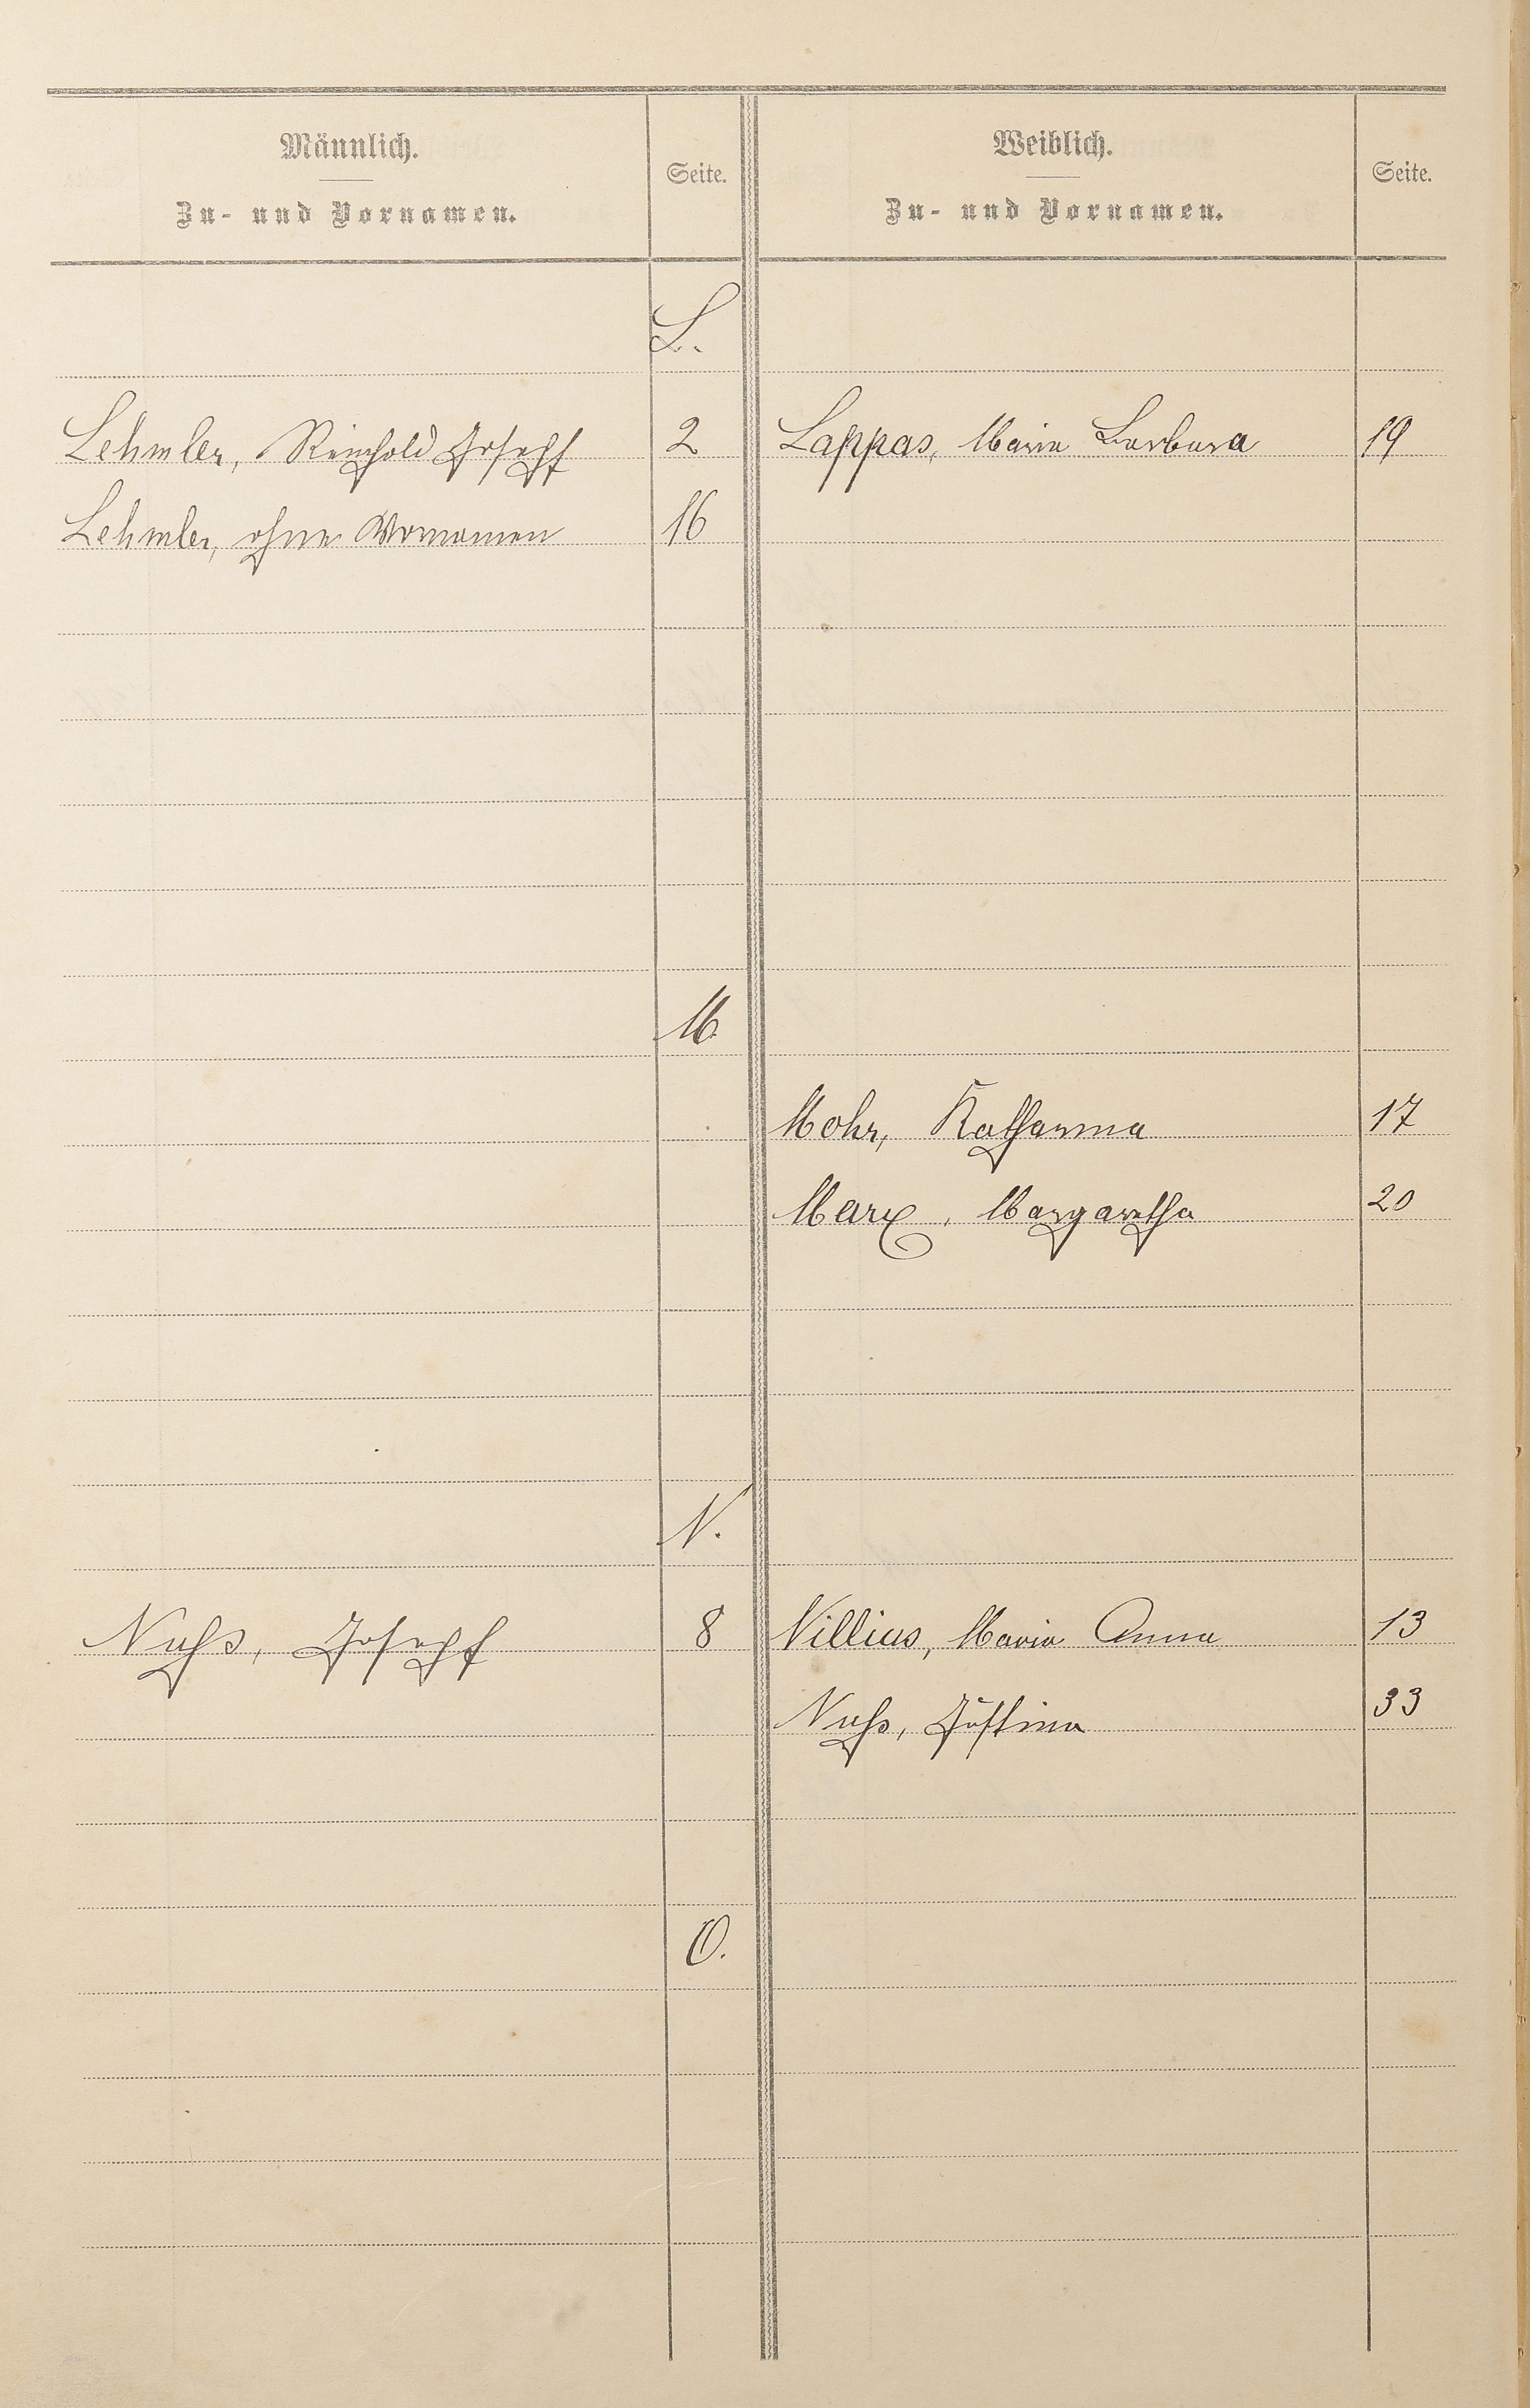 Männlich.
Zu- und Vornamen.
Seite.
Weiblich.
Zu- und Vornamen.
Seite.
L.
Lehmler, Reinhold Joseph 2 Lappas, Maria Barbara 19
Lehmler, ohne Vornamen 16
M
Mohr, Katharina 17
Marx, Margaretha 20
N.
Nuhs, Joseph 8 Nillius, Maria Anna 13
Nuhs, Justina 33
O.